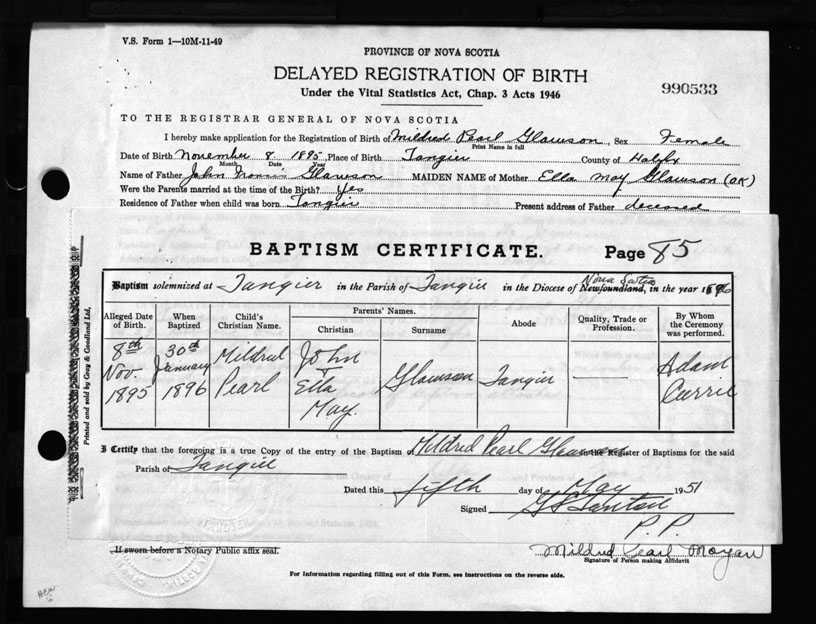 V.S. Form 1—10M-11-49
PROVINCE OF NOVA SCOTIA
DELAYED REGISTRATION OF BIRTH
Under the Vital Statistics Act, Chap. 3 Acts 1946
990533
TO THE REGISTRAR GENERAL OF NOVA SCOTIA
I hereby make application for the Registration of Birth of Mildred Pearl Glawson, Sex Female
Print Name in full
Date of Birth November 8. 1895, Place of Birth Tangier County of Halifx
Month Date Year
Name of Father John Glawson MAIDEN NAME of Mother Ella May Glawson (OK)
Were the Parents married at the time of the Birth? Yes
Residence of Father when child was born Tangier Present address of Father deceased
BAPTISM CERTIFICATE. Page 85
Baptism solemnized at Tangier in the Parish of Tangier in the Diocese of Newfoundland, Nova Scotia in the year 1896
Alleged Date of Birth. When Baptized Child's Christian Name. Parents' Names. Christian Surname Abode Quality, Trade or Profession. By Whom the Ceremony was performed.
8th Nov. 1895 30th January 1896 Mildred Pearl John & Ella May. Glawson Tangier Adam Currie
I Certify that the foregoing is a true Copy of the entry of the Baptism of Mildred Pearl Glawson in the Register of Baptisms for the said
Parish of Tangier
Dated this fifth day of May 1951
Signed
P.P.
Printed and sold by Gray & Goodland Ltd.
If sworn before a Notary Public affix seal.
Mildred Pearl Mogan
Signature of Person making Affidavit
For Information regarding filling out of this Form, see instructions on the reverse side.